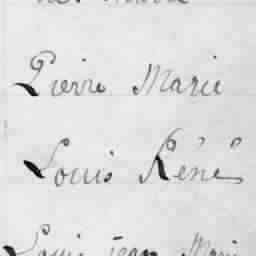 Pierre Marie
Louis Réné
Louis Jean Marie